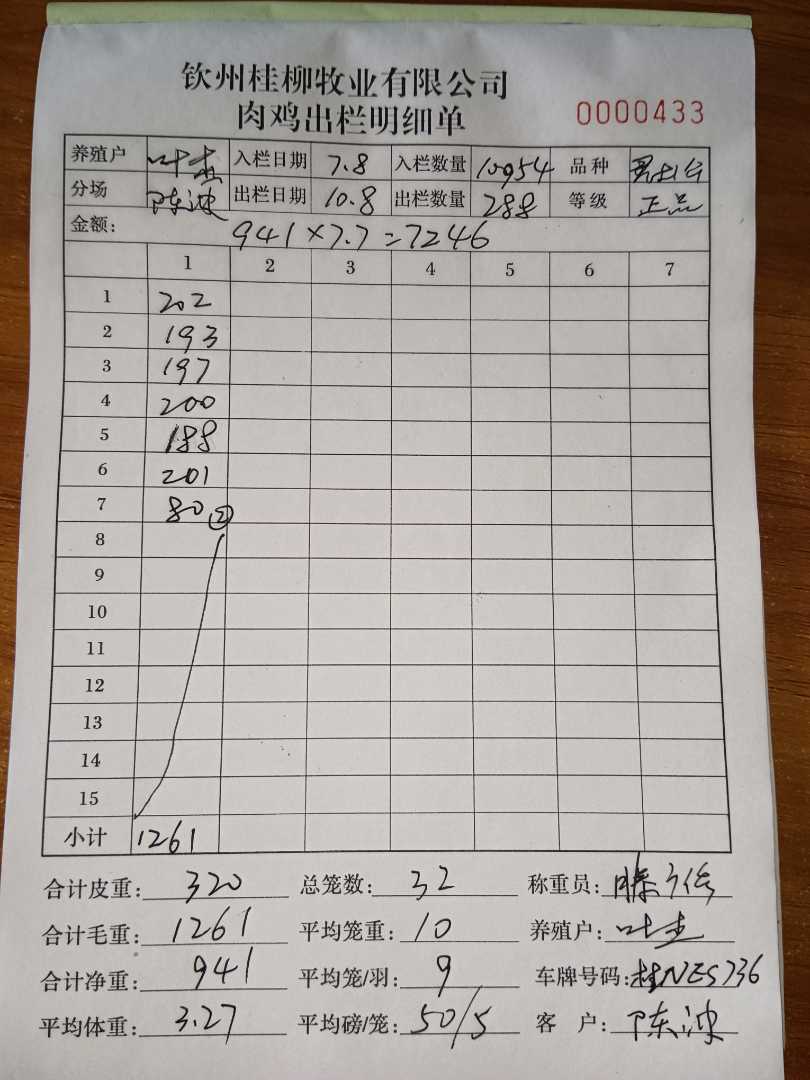 钦州桂柳牧业有限公司
肉鸡出栏明细单 0000433
养殖户 叶 入栏日期 7.8 入栏数量 10954 品种
分场 陈波 出栏日期 10.8 出栏数量 288 等级 正品
金额: 941×7.7=7246
1 2 3 4 5 6 7
1 202
2 193
3 197
4 200
5 188
6 201
7 80 ②
8
9
10
11
12
13
14
15
小计 1261
合计皮重: 320 总笼数: 32 称重员:
合计毛重: 1261 平均笼重: 10 养殖户: 叶
合计净重: 941 平均笼/羽: 9 车牌号码: 桂NES736
平均体重: 3.27 平均磅/笼: 50/5 客 户: 陈波